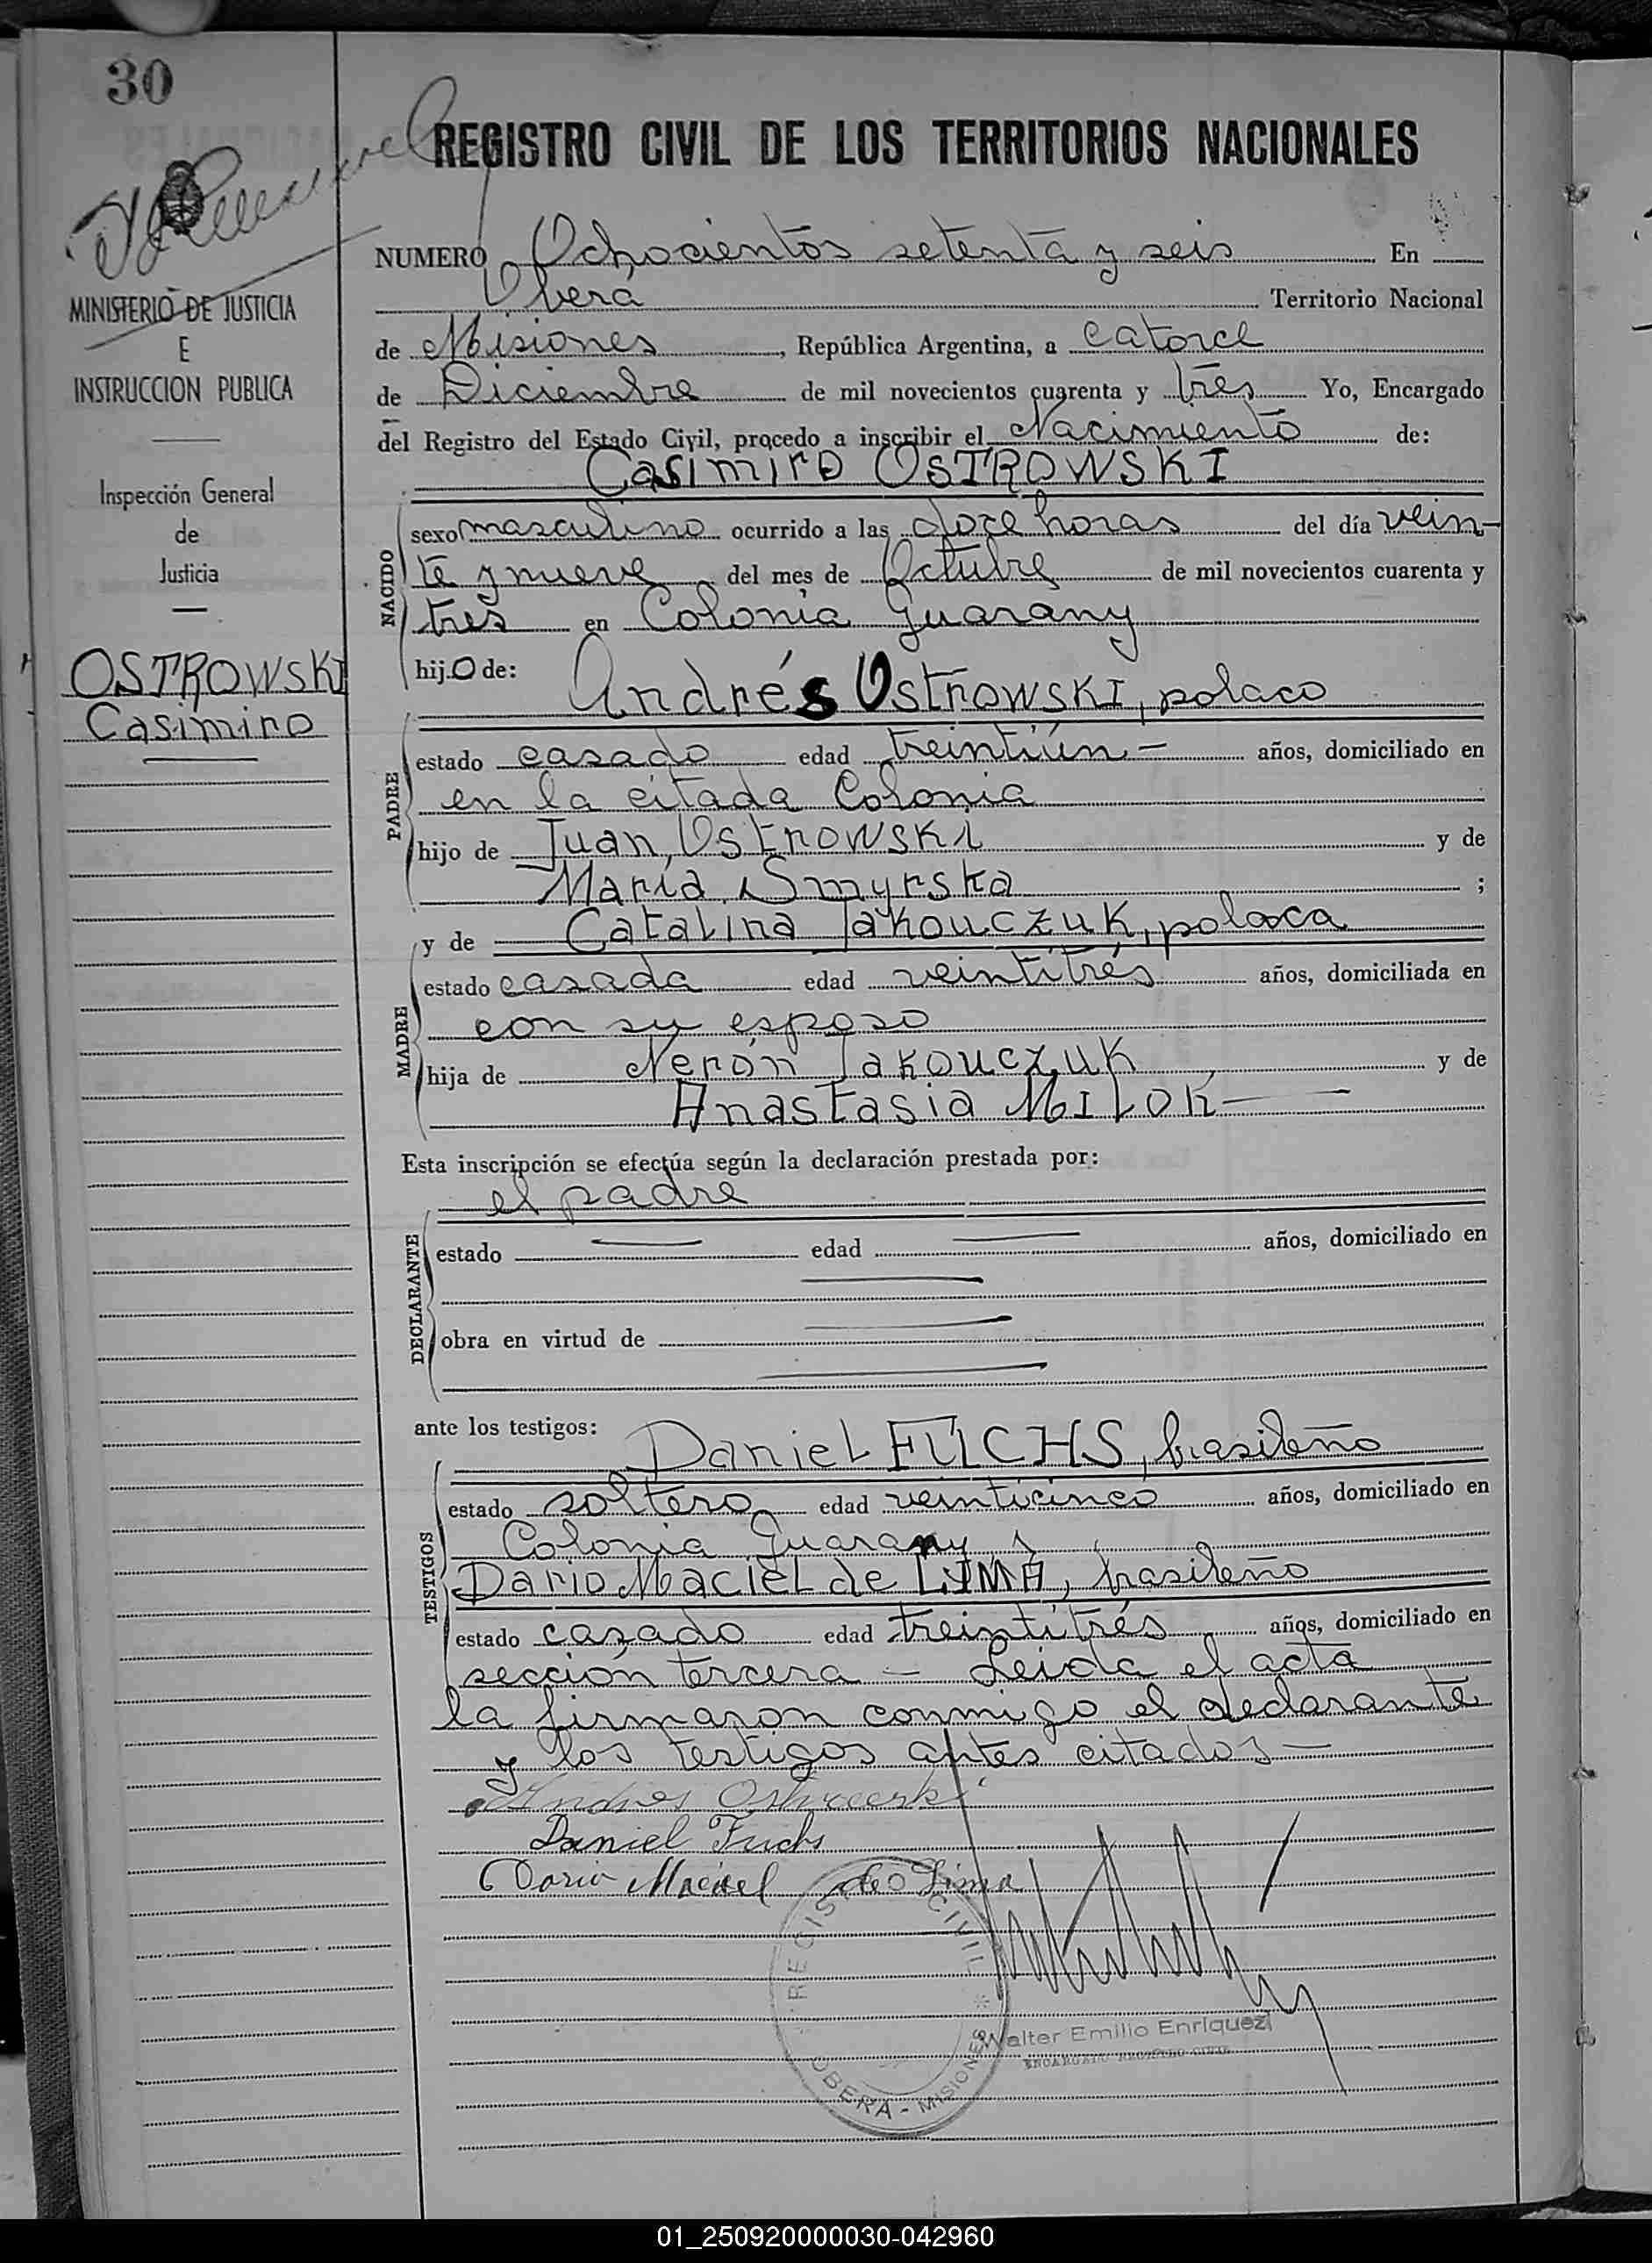 30
REGISTRO CIVIL DE LOS TERRITORIOS NACIONALES
NUMERO Ochocientos setenta y seis En
Obera Territorio Nacional
de Misiones, República Argentina, a catorce
de Diciembre de mil novecientos cuarenta y tres Yo, Encargado
del Registro del Estado Civil, procedo a inscribir el Nacimiento de:
Casimiro OSTROWSKI
NACIDO
sexo masculino ocurrido a las doce horas del día vein-
te y nueve del mes de Octubre de mil novecientos cuarenta y
tres en Colonia Guarany
hijo de:
Andrés Ostrowski, polaco
PADRE
estado casado edad treintiún - años, domiciliado en
en la citada Colonia
hijo de Juan Ostrowski y de
María Smyrska ;
y de Catalina Jakouczuk, polaca
MADRE
estado casada edad veintitrés años, domiciliada en
con su esposo
hija de Nerón Jakouczuk y de
Anastasia
Esta inscripción se efectúa según la declaración prestada por:
el padre
DECLARANTE
estado edad años, domiciliado en
obra en virtud de
ante los testigos:
Daniel FUCHS, brasileño
TESTIGOS
estado soltero edad veinticinco años, domiciliado en
Colonia Guarany y
Dario Maciel de LIMA, brasileño
estado casado edad treintitrés años, domiciliado en
sección tercera - Leida el acta
la firmaron conmigo el declarante
y los testigos antes citados -
Andres Ostrowski
Daniel Fuchs
Dario Maciel de Lima
REGISTRO CIVIL
OBERA - MISIONES
Walter Emilio Enriquez
ENCARGADO REGISTRO CIVIL
MINISTERIO DE JUSTICIA
E
INSTRUCCION PUBLICA
Inspección General
de
Justicia
OSTROWSKI
Casimiro
01_250920000030-042960